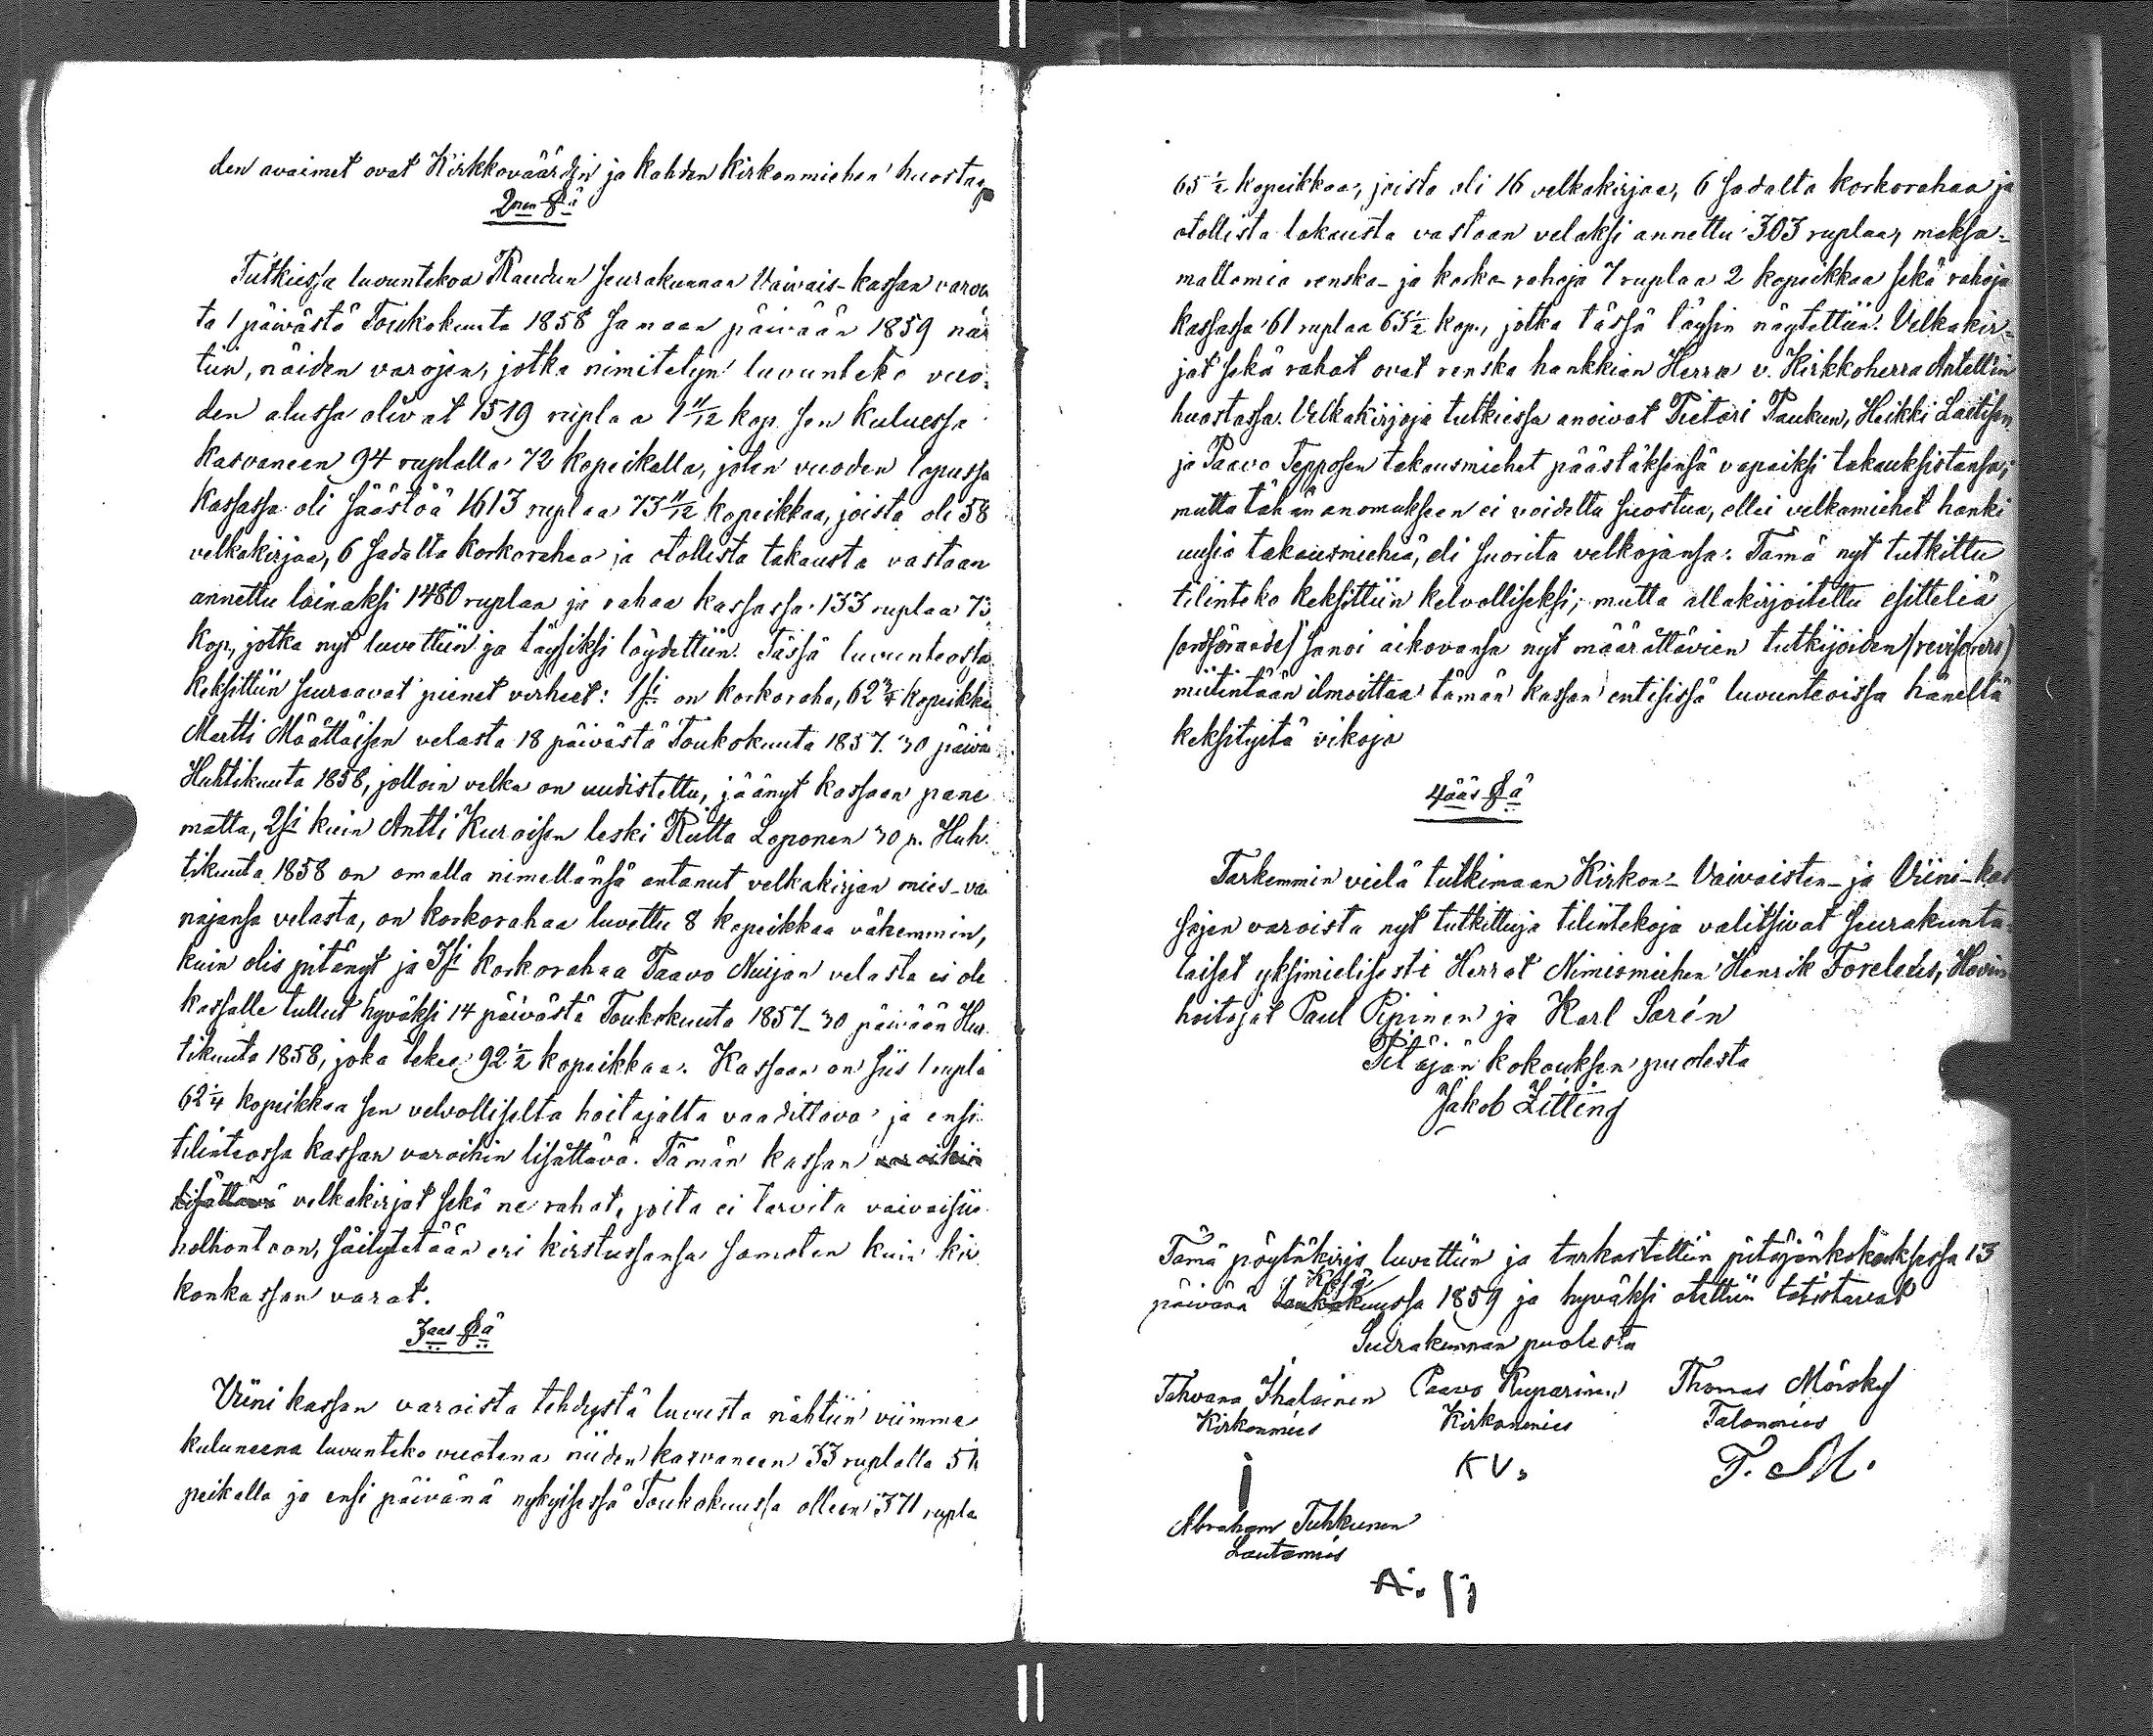 den avaimet ovat Kirkkoväärdin ja kahden kirkonmiehen huostas
2nen §ä
Tutkiessa luvuntekoa Raudun seurakunnan Vaivais-kassan varois
ta 1 päivästä Toukokuuta 1858 samaan päivään 1859 näh
tiin, näiden varojen, jotka nimitetyn luvunteko vuo=
den alussa olivat 1519 ruplaa 1 11/12 kop. sen kuluessa
kasvaneen 94 ruplalla 72 kopeikalla, joten vuoden lopussa
kassassa oli säästöä 1613 ruplaa 73 11/12 kopeikkaa, joista oli 58
velkakirjaa, 6 sadalta korkorahaa ja otollista takausta vastaan
annettu lainaksi 1480 ruplaa ja rahaa kassassa 133 ruplaa 73
kop., jotka nyt luvettiin ja täysiksi löydettiin. Tässä luvunteossa
keksittiin seuraavat pienet virheet: 1si on korkoraha, 62 3/4 kopeikka
Martti Määttäisen velasta 18 päivästä Toukokuuta 1857. 30 päivä
Huhtikuuta 1858, jolloin velka on uudistettu, jäänyt kassaan pane
matta, 2si kuin Antti Kuroisen leski Riitta Loponen 30 p. Huh=
tikuuta 1858 on omalla nimellänsä antanut velkakirjan mies-va
najansa velasta, on korkorahaa luvettu 8 kopeikkaa vähemmin,
kuin olis pitänyt ja 3si korkorahaa Paavo Nuijan velasta ei ole
kassalle tullut hyväksi 14 päivästä Toukokuuta 1857 - 30 päivään Huh
tikuuta 1858, joka tekee 92 1/2 kopeikkaa. Kassaan on siis 1 rupla
62 1/4 kopeikkaa sen velvolliselta hoitajalta vaadittava ja ensi
tilinteossa kassan varoihin lisättävä. Tämän kassan varoihin
lisättävä velkakirjat sekä ne rahat, joita ei tarvita vaivaisiin
holhontaan, säilytetään eri kirstussansa samoten kuin kir
konkassan varat.
3aas §ä
Viini kassan varoista tehdystä luvusta nähtiin viimme
kuluneena luvunteko vuotena niiden kasvaneen 33 ruplalla 5 k
peikalla ja ensi päivänä nykyisessä Toukokuussa olleen 371 rupla
65 1/2 kopeikkaa, joista oli 16 velkakirjaa, 6 sadalta korkorahaa ja
otollista takausta vastaan velaksi annettu 303 ruplaa, maksa=
mattomia renska- ja koska-rahoja 7 ruplaa 2 kopeikkaa sekä rahoja
kassassa 61 ruplaa 63 1/2 kop., jotka tässä täysin näytettiin. Velkakir=
jat sekä rahat ovat renska hankkian Herra v. Kirkkoherra Antellin
huostassa. Velkakirjoja tutkiessa anoivat Pietari Paukun, Heikki Laetisen
ja Paavo Tepposen takausmiehet päästäksensä vapaiksi takauksistansa;
mutta tähän anomukseen ei voidettu suostua, ellei velkamiehet hanki
uusia takausmiehiä, eli suorita velkojansa. Tämä nyt tutkittu
tilinteko keksittiin kelvolliseksi; mutta allakirjoitettu esitteliä
(ordförande) sanoi aikovansa nyt määrättävien tutkijoiden (revisorers)
mietintään ilmoittaa tämän kassan entisissä luvunteoissa häneltä
keksityitä vikoja
4ääs §ä
Tarkemmin vielä tutkimaan Kirkon- Vaivaisten- ja Viini-kas
sojen varoista nyt tutkittuja tilintekoja valitsivat seurakunta
laiset yksimielisesti Herrat Nimismiehen Henrik Foreleus, Hovin
hoitajat Paul Pipinen ja Karl Sorén
Pitäjän kokouksen puolesta
Jakob Zitting
Tämä pöytäkirja luvettiin ja tarkastettiin pitäjänkokouksessa 13
Kesä
päivänä toukokuussa 1859 ja hyväksi otettiin totistavat
Seurakunnan puolesta
Tahvana Ihalainen Paavo Kuparinen Thomas Mörsky
Kirkonmies Kirkonmies Talonmies
KV. T. M.
Abraham Tuhkunen
Lautamies
A.